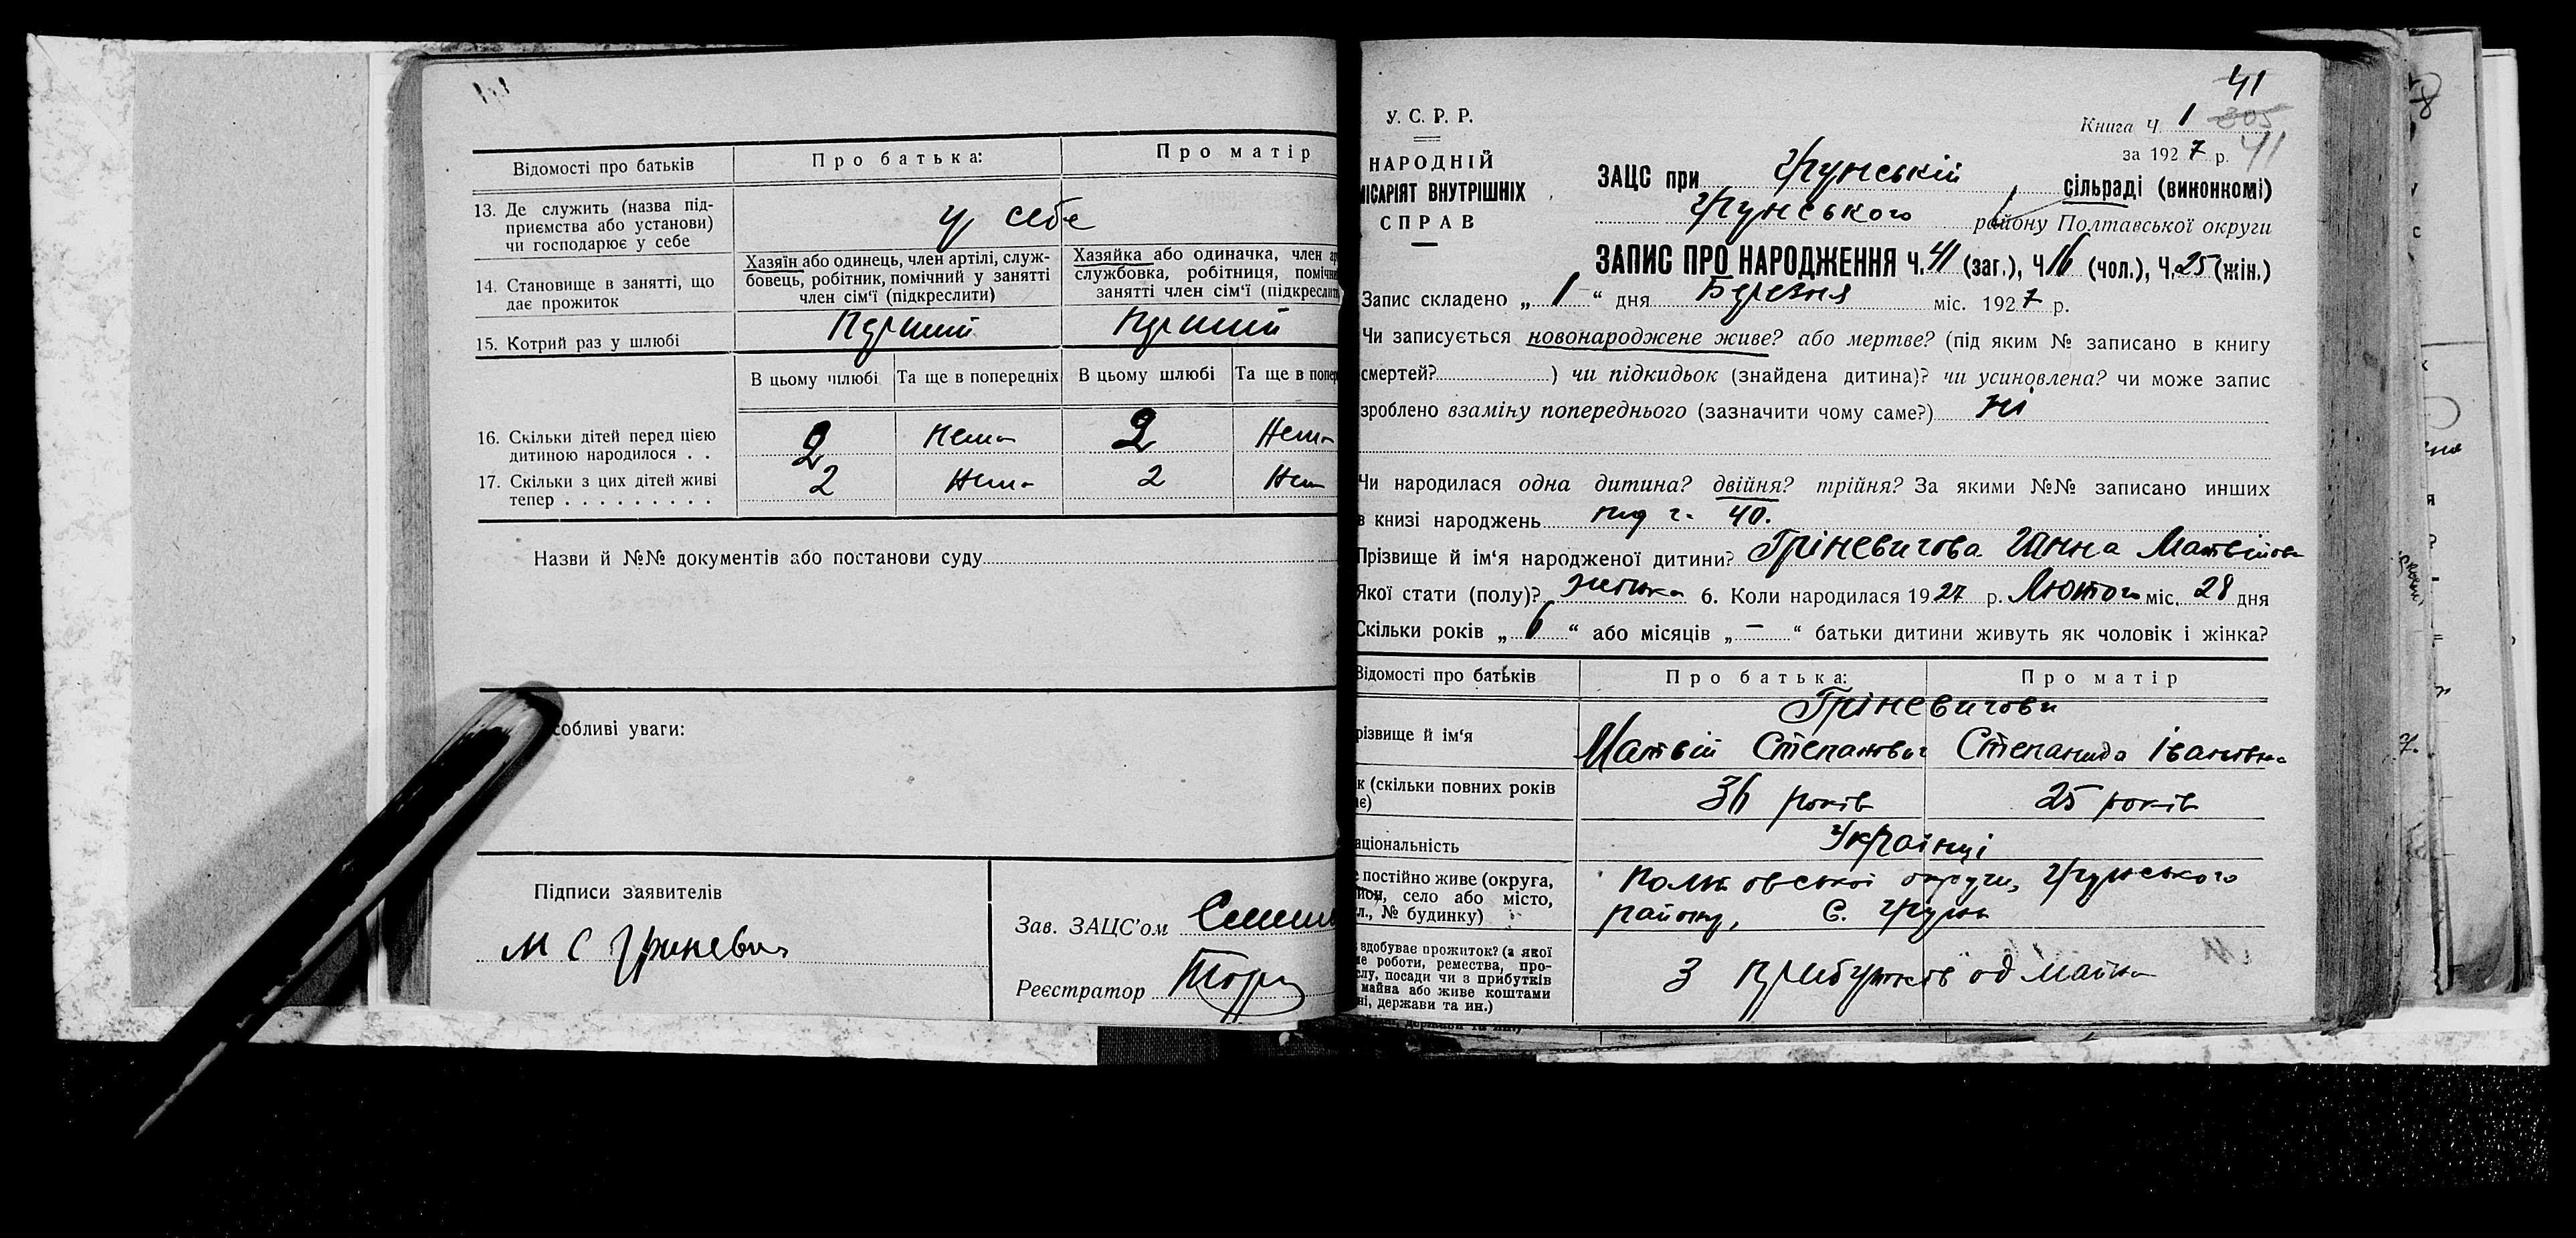 Відомості про батьків
Про батька:
Про матір
13. Де служить (назва під-
приємства або установи)
чи господарює у себе
у себе
14. Становище в занятті, що
дає прожиток
Хазяїн або одинець, член артілі, служ-
бовець, робітник, помічний у занятті
член сім'ї (підкреслити)
Хазяйка або одиначка, член
службовка, робітниця,
занятті член сім'ї
15. Котрий раз у шлюбі
Перший
Перший
В цьому шлюбі
Та ще в попередніх
В цьому шлюбі
Та ще в
16. Скільки дітей перед цією
дитиною народилося . .
2
Нема
2
Нема
17. Скільки з цих дітей живі
тепер . . . . . . . . .
2
Нема
2
Нема
Назви й №№ документів або постанови суду
собливі уваги:
Підписи заявителів
М С Гриневич
Зав. ЗАЦС'ом
Реєстратор
41
У. С. Р. Р.
Книга Ч. 1
305
41
за 1927 р.
НАРОДНІЙ
МІСАРІЯТ ВНУТРІШНІХ
СПРАВ
ЗАЦС при Грунській сільраді (виконкомі)
Грунського району Полтавської округи
ЗАПИС ПРО НАРОДЖЕННЯ Ч. 41 (заг.), Ч. 16 (чол.), Ч. 25 (жін.)
Запис складено „ 1 “ дня Березня міс. 1927 р.
Чи записується новонароджене живе? або мертве? (під яким № записано в книгу
смертей? ) чи підкидьок (знайдена дитина)? чи усиновлена? чи може запис
зроблено взаміну попереднього (зазначити чому саме?) Ні
Чи народилася одна дитина? двійня? трійня? За якими №№ записано инших
в книзі народжень під ч. 40.
Прізвище й ім'я народженої дитини? Гріневичова Ганна Матвійова
Якої стати (полу)? жіноча 6. Коли народилася 1927 р. Лютого міс. 28 дня
Скільки років „ 6 “ або місяців „ — “ батьки дитини живуть як чоловік і жінка?
Відомості про батьків
Про батька:
Про матір
різвище й ім'я
Гріневичови
Матвій Степанович
Степанида Івановна
к (скільки повних років
є)
36 років
25 років
аціональність
Українці
е постійно живе (округа,
йон, село або місто,
л., № будинку)
Полтавської округи, Грунського
району, С. Грунь
вдобуває прожиток? (з якої
ме роботи, ремества, про-
слу, посади чи з прибутків
майна або живе коштами
ні, держави та ин.)
З прибутків од майна